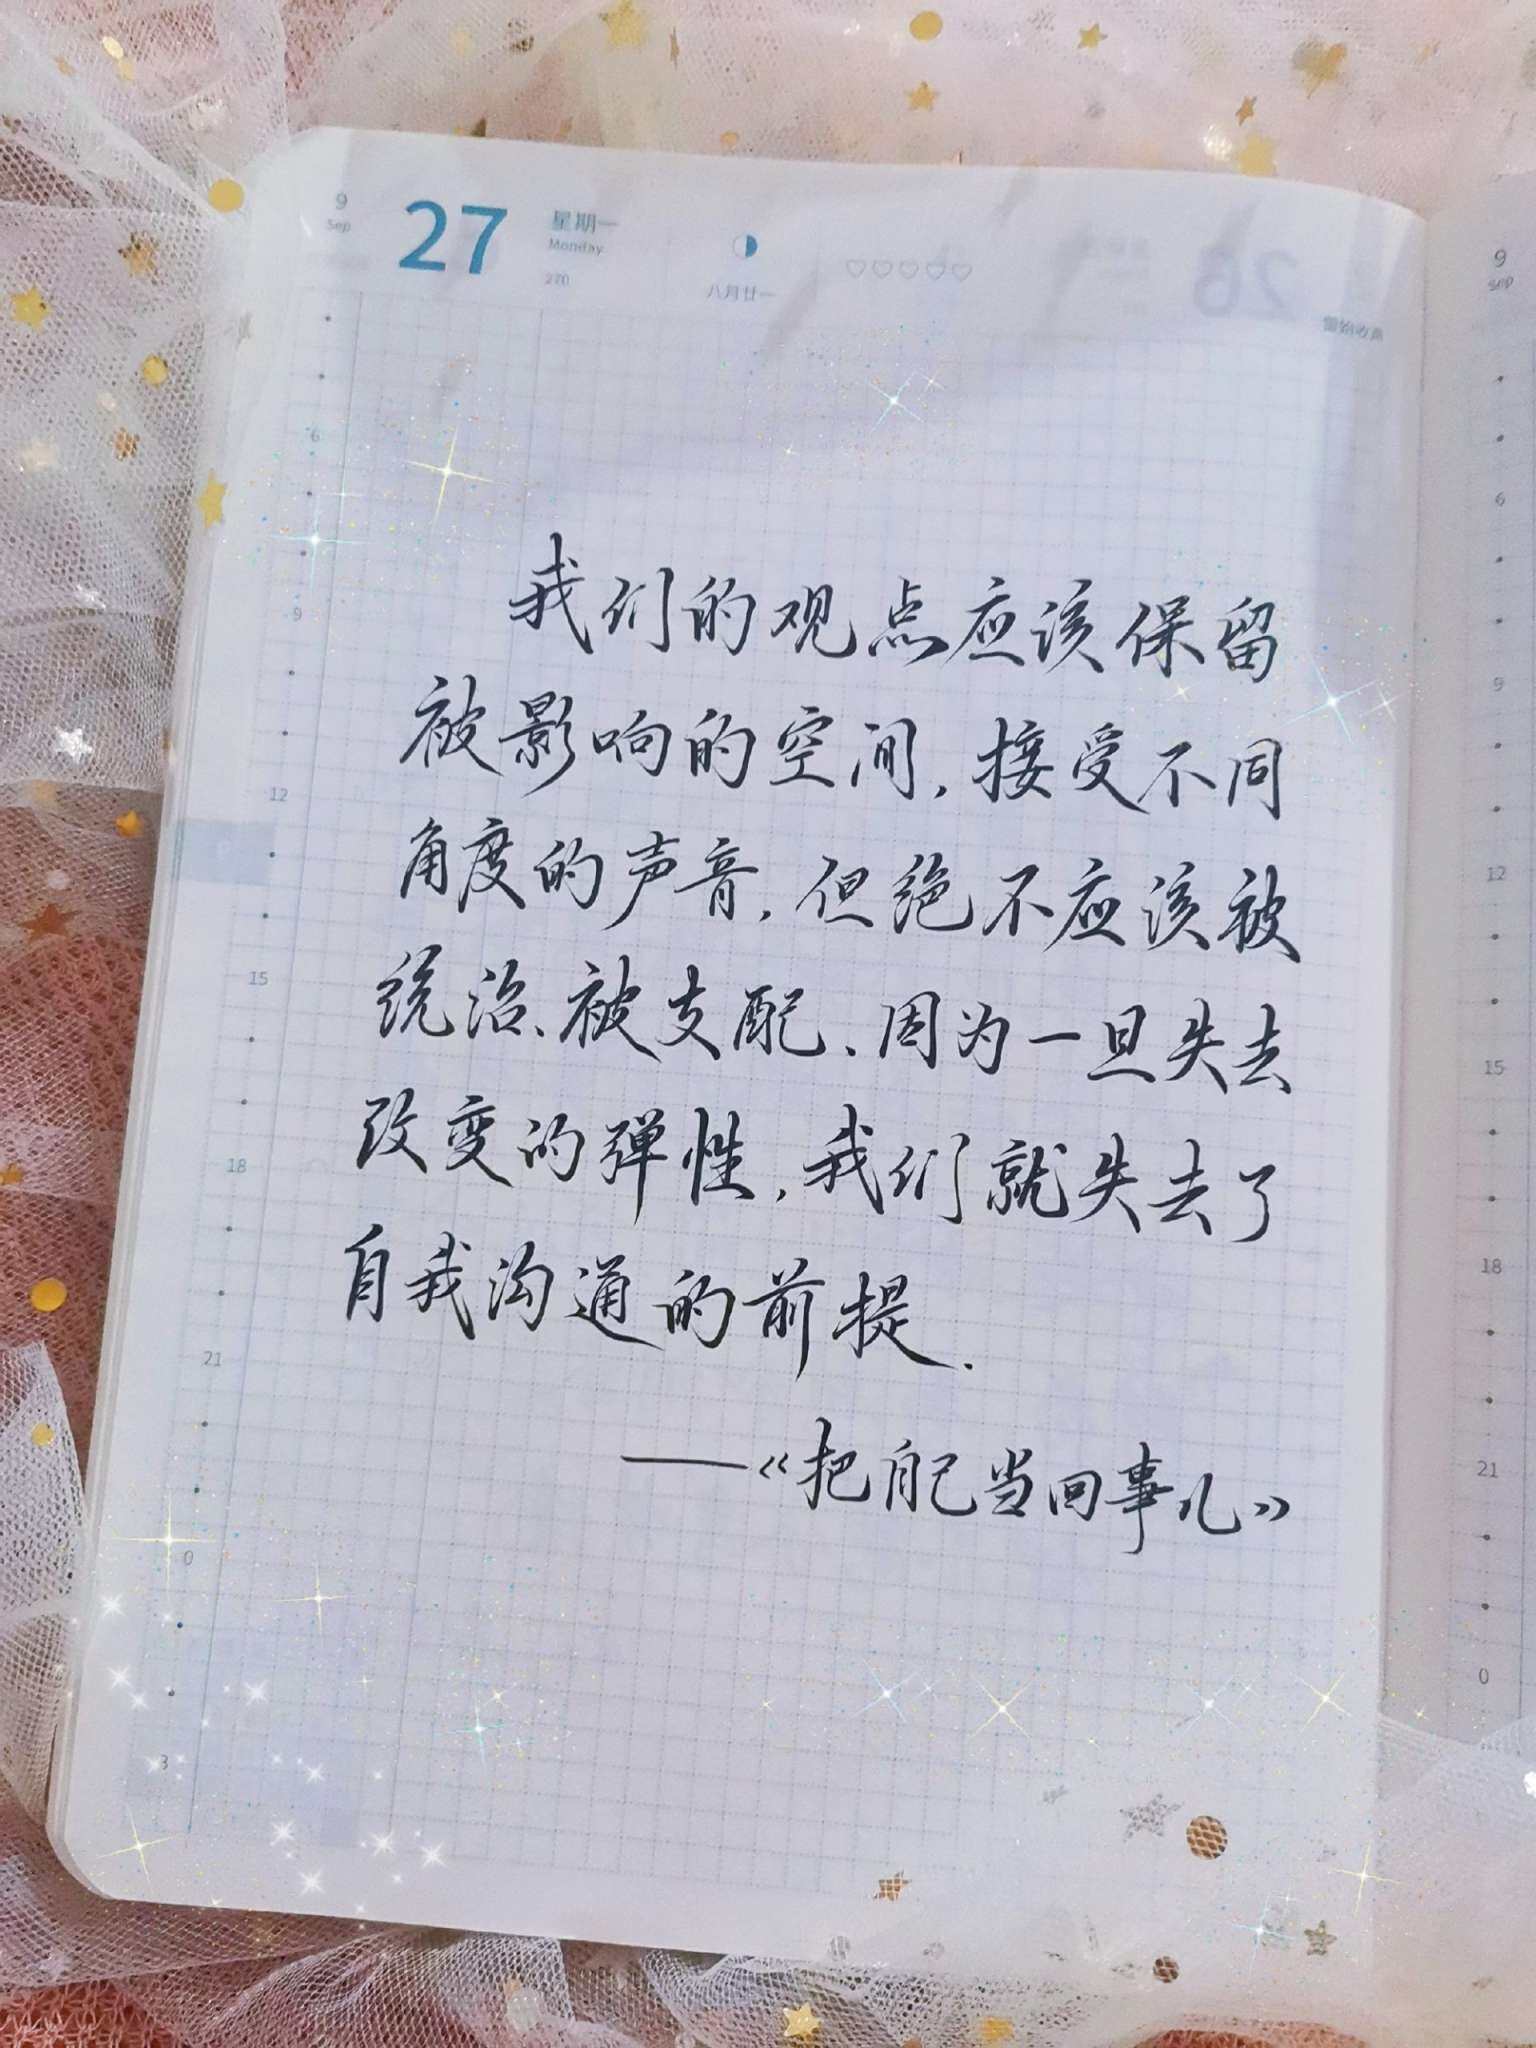 9
Sep
27
星期一
Monday
270
八月廿一
雷始收声
我们的观点应该保留
被影响的空间,接受不同
角度的声音,但绝不应该被
统治、被支配、因为一旦失去
改变的弹性,我们就失去了
自我沟通的前提.
——《把自己当回事儿》
6
9
12
15
18
21
0
3
9
Sep
6
9
12
15
18
21
0